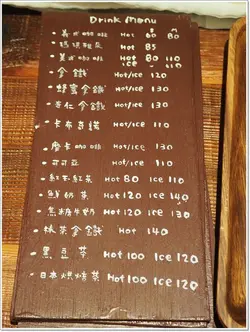 Drink Menu
・美式咖啡 Hot 60 80
・瑪琪雅朵 Hot 85
・美式咖啡 Hot 80 110
ice 110
・拿鐵 Hot/ice 120
・蜂蜜拿鐵 Hot/ice 130
・杏仁拿鐵 Hot/ice 130
・卡布奇諾 Hot/ice 110
・摩卡咖啡 Hot/ice 130
・可可亞 Hot/ice 110
・紅茶 Hot 80 ice 110
・鮮奶茶 Hot 120 ice 140
・焦糖牛奶 Hot 120 ice 130
・抹茶拿鐵 Hot 140
・黑豆茶 Hot 100 ICE 120
・日本烘焙茶 Hot 100 ICE 120